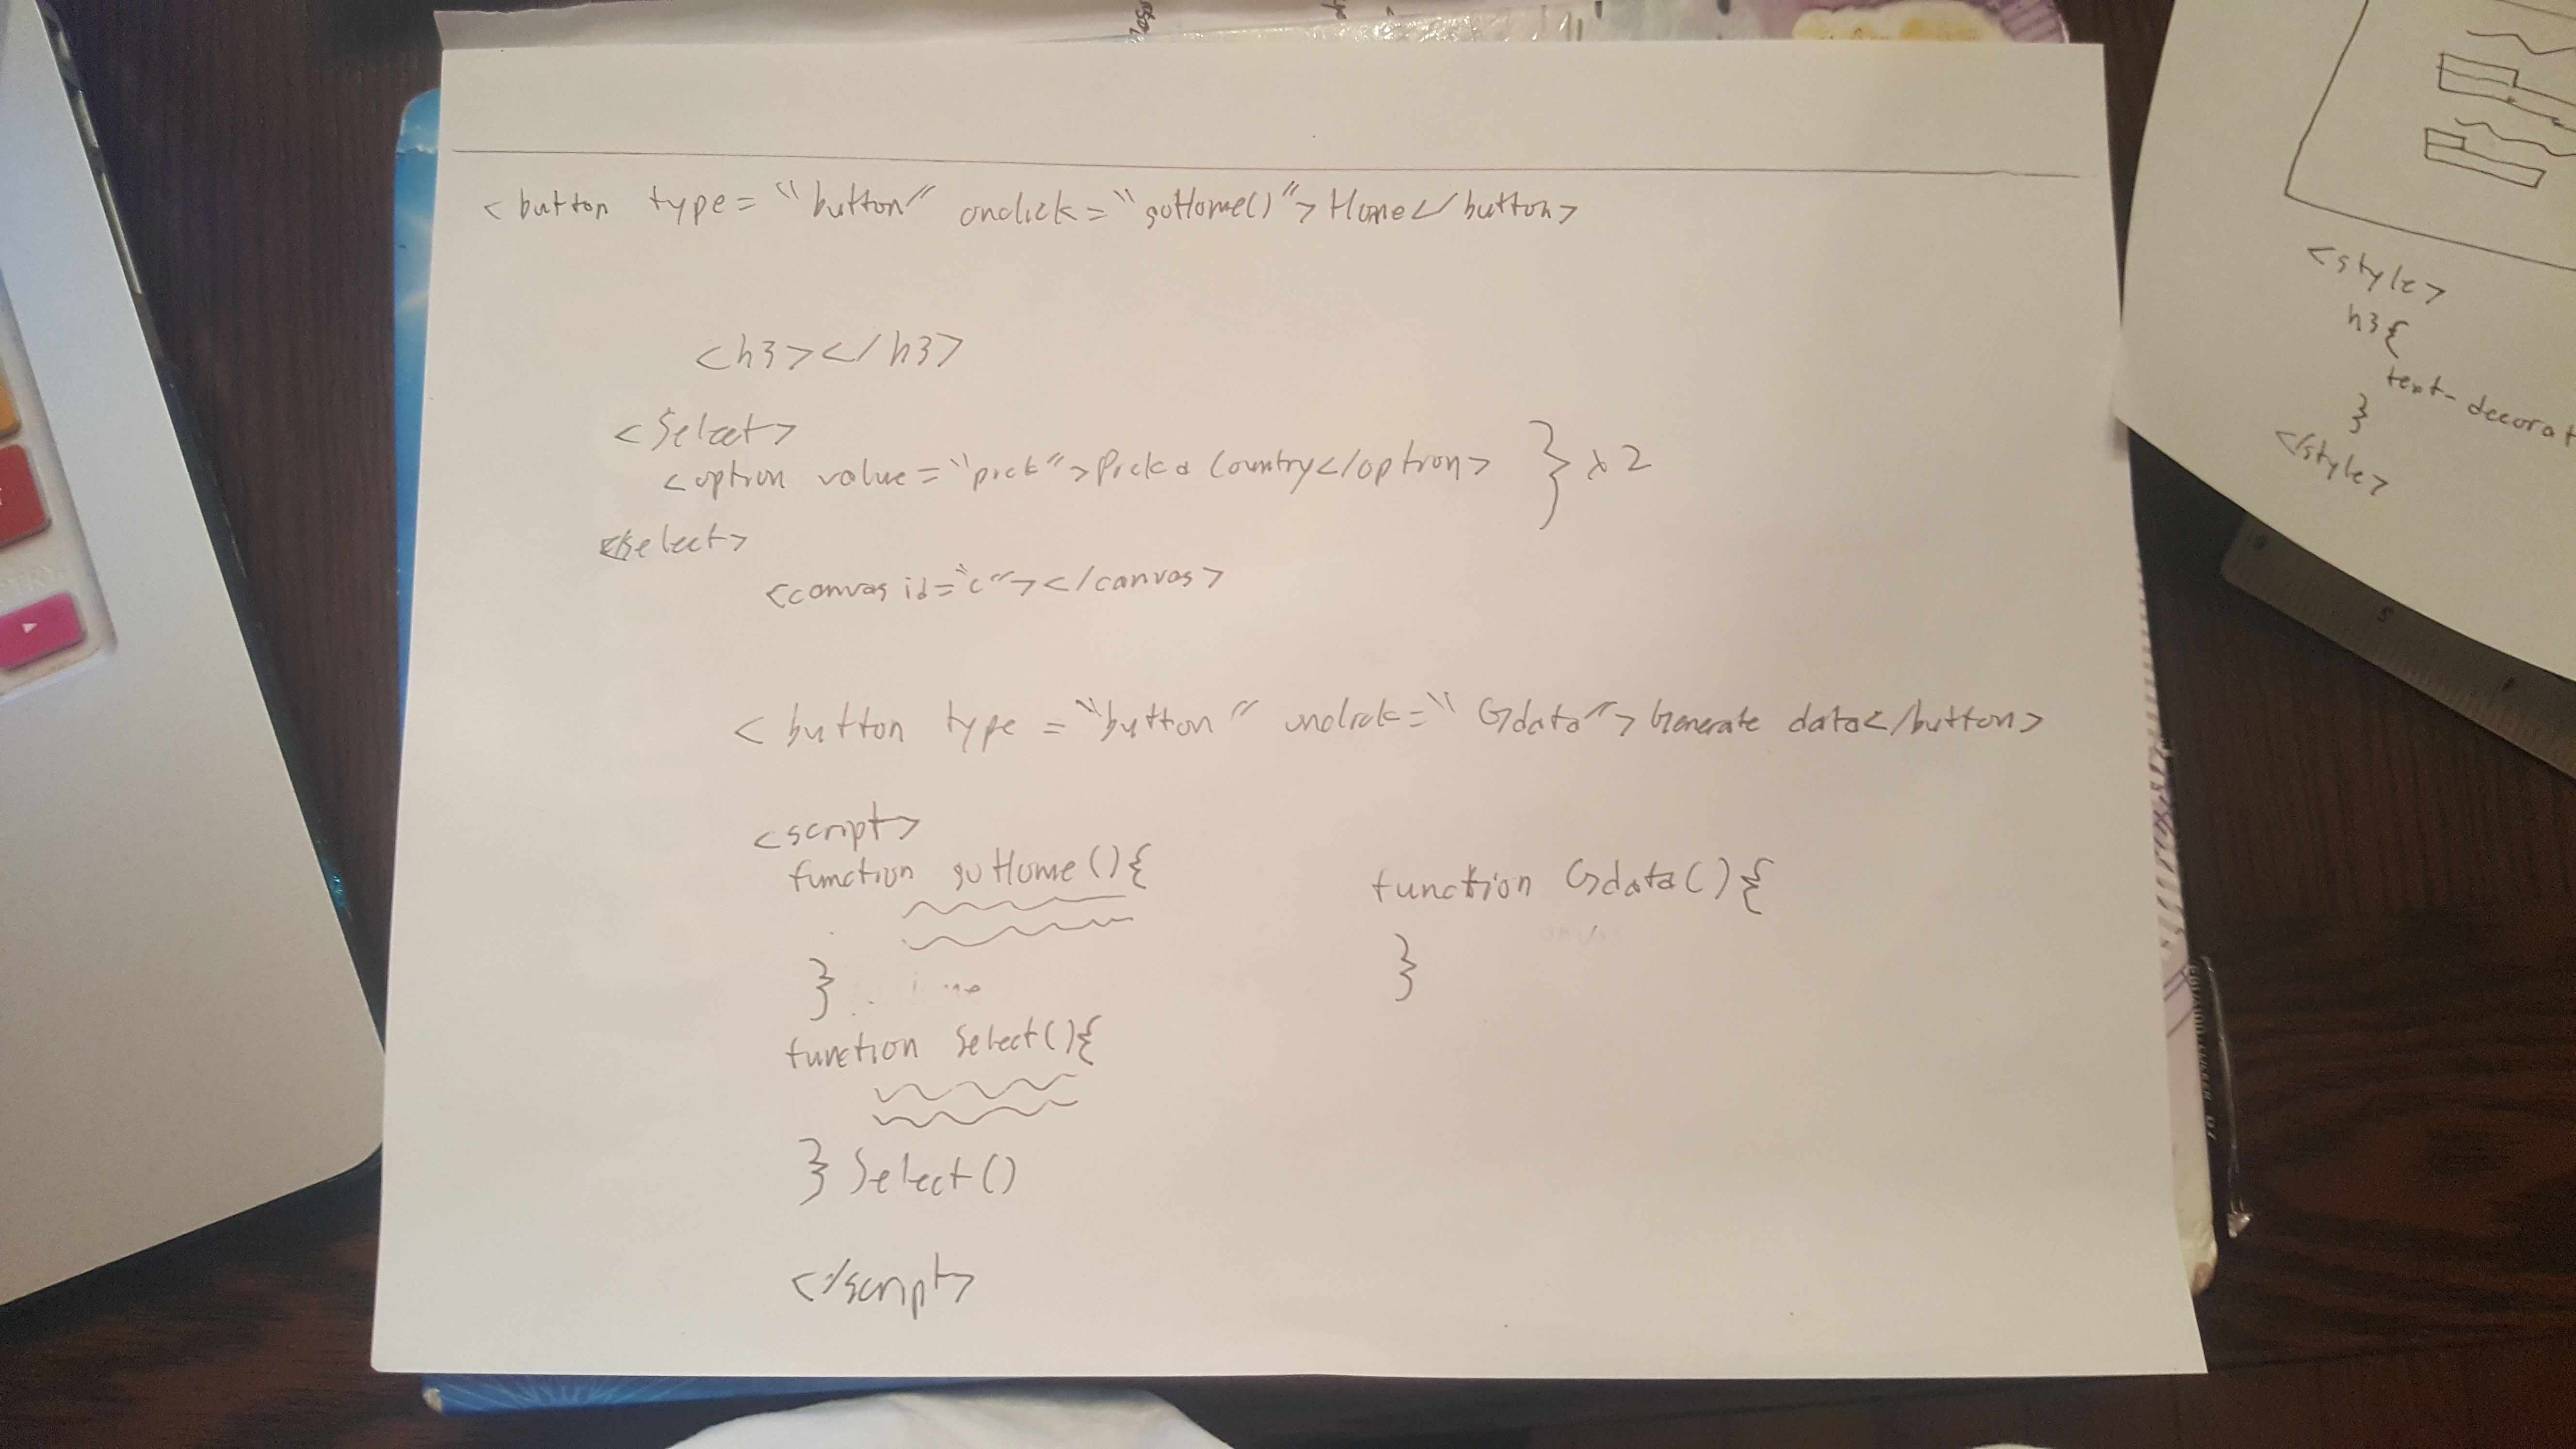 <button type="button" onclick="goHome()">Home</button>
<h3></h3>
<Select>
<option value="pick">Pick a Country</option> } x2
</select>
<canvas id="c"></canvas>
<button type="button" onclick="Gdata">Generate data</button>
<script>
function goHome(){
}
function Select(){
} Select()
</script>
function Gdata(){
}
<style>
h3{
text-decorat
}
</style>